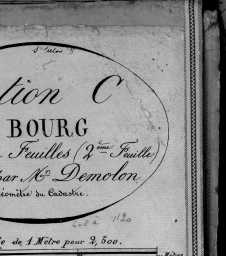 tion C
BOURG
Feuilles (2ème Feuille)
par Mr Demolon
éomètre du Cadastre.
de 1 Mètre pour 2,500.